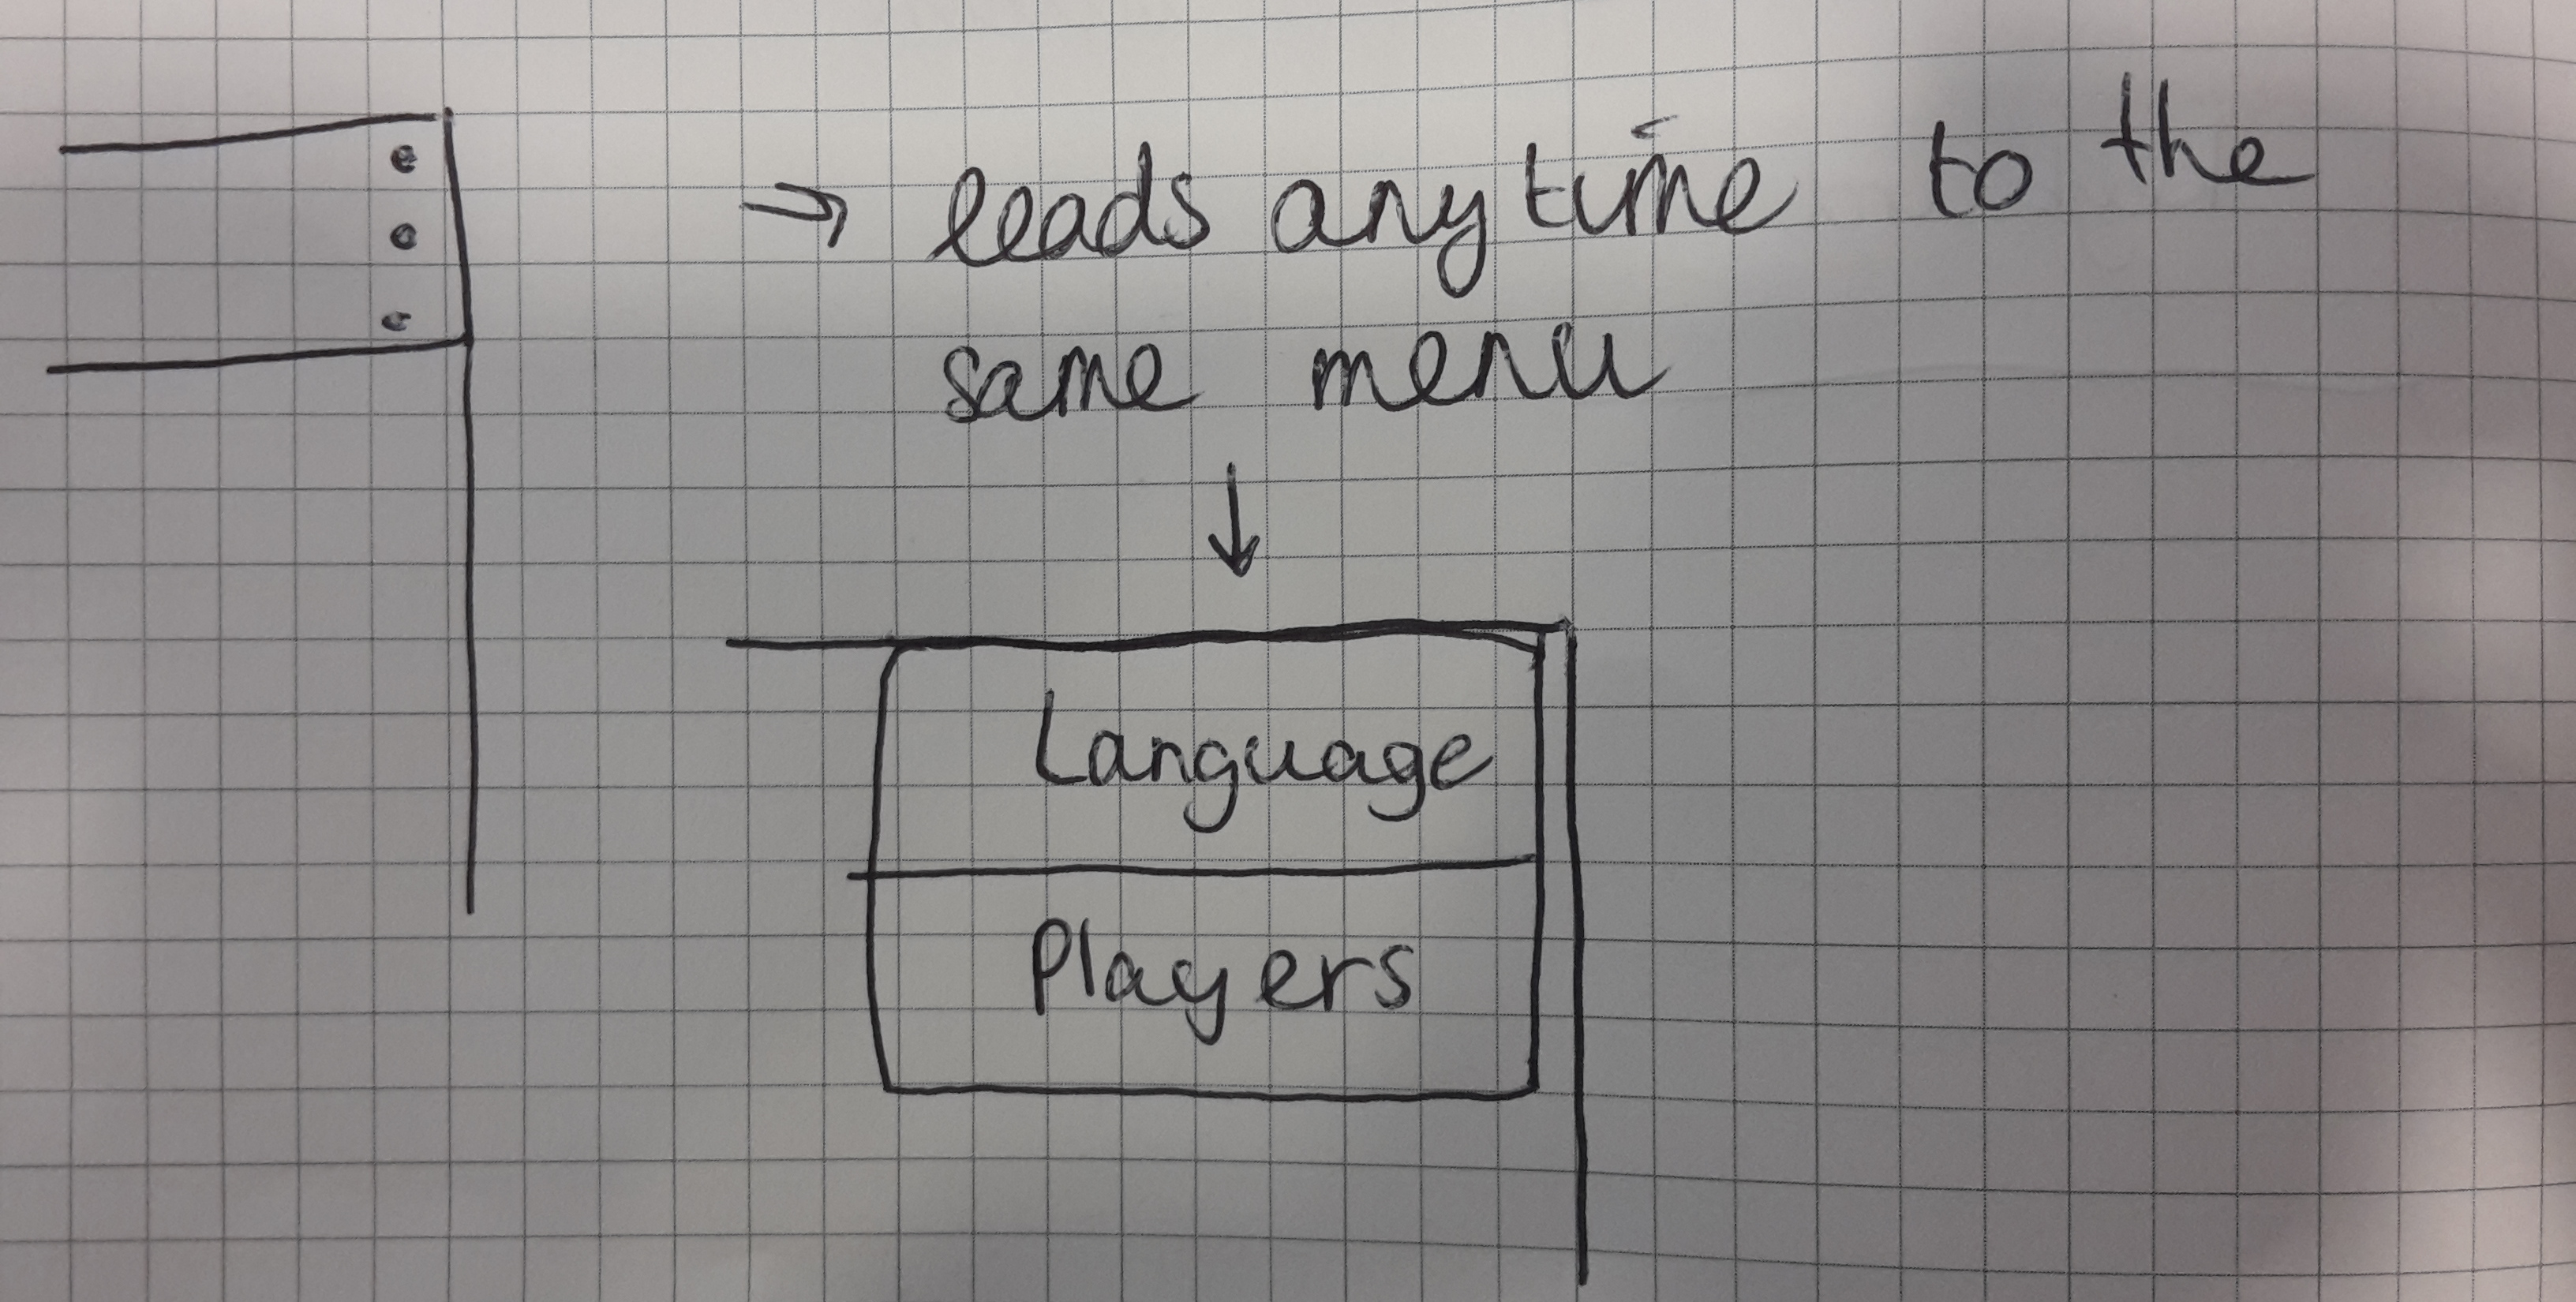 → leads anytime to the
same menu
↓
Language
Players